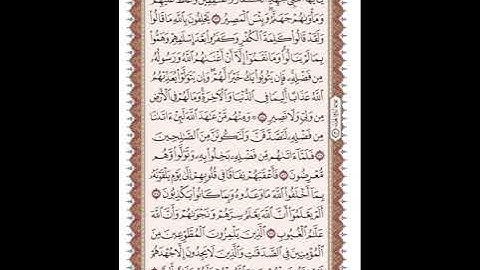 يَٰٓأَيُّهَا ٱلنَّبِيُّ جَٰهِدِ ٱلْكُفَّارَ وَٱلْمُنَٰفِقِينَ وَٱغْلُظْ عَلَيْهِمْ
وَمَأْوَىٰهُمْ جَهَنَّمُ وَبِئْسَ ٱلْمَصِيرُ ۝ يَحْلِفُونَ بِٱللَّهِ مَا قَالُوا۟
وَلَقَدْ قَالُوا۟ كَلِمَةَ ٱلْكُفْرِ وَكَفَرُوا۟ بَعْدَ إِسْلَٰمِهِمْ وَهَمُّوا۟
بِمَا لَمْ يَنَالُوا۟ وَمَا نَقَمُوٓا۟ إِلَّآ أَنْ أَغْنَىٰهُمُ ٱللَّهُ وَرَسُولُهُۥ
مِن فَضْلِهِۦ فَإِن يَتُوبُوا۟ يَكُ خَيْرًا لَّهُمْ وَإِن يَتَوَلَّوْا۟ يُعَذِّبْهُمُ
ٱللَّهُ عَذَابًا أَلِيمًا فِى ٱلدُّنْيَا وَٱلْءَاخِرَةِ وَمَا لَهُمْ فِى ٱلْأَرْضِ
مِن وَلِىٍّ وَلَا نَصِيرٍ ۝ وَمِنْهُم مَّنْ عَٰهَدَ ٱللَّهَ لَئِنْ ءَاتَىٰنَا
مِن فَضْلِهِۦ لَنَصَّدَّقَنَّ وَلَنَكُونَنَّ مِنَ ٱلصَّٰلِحِينَ
۝ فَلَمَّآ ءَاتَىٰهُم مِّن فَضْلِهِۦ بَخِلُوا۟ بِهِۦ وَتَوَلَّوا۟ وَّهُم
مُّعْرِضُونَ ۝ فَأَعْقَبَهُمْ نِفَاقًا فِى قُلُوبِهِمْ إِلَىٰ يَوْمِ يَلْقَوْنَهُۥ
بِمَآ أَخْلَفُوا۟ ٱللَّهَ مَا وَعَدُوهُ وَبِمَا كَانُوا۟ يَكْذِبُونَ ۝
أَلَمْ يَعْلَمُوٓا۟ أَنَّ ٱللَّهَ يَعْلَمُ سِرَّهُمْ وَنَجْوَىٰهُمْ وَأَنَّ ٱللَّهَ
عَلَّٰمُ ٱلْغُيُوبِ ۝ ٱلَّذِينَ يَلْمِزُونَ ٱلْمُطَّوِّعِينَ مِنَ
ٱلْمُؤْمِنِينَ فِى ٱلصَّدَقَٰتِ وَٱلَّذِينَ لَا يَجِدُونَ إِلَّا جُهْدَهُمْ